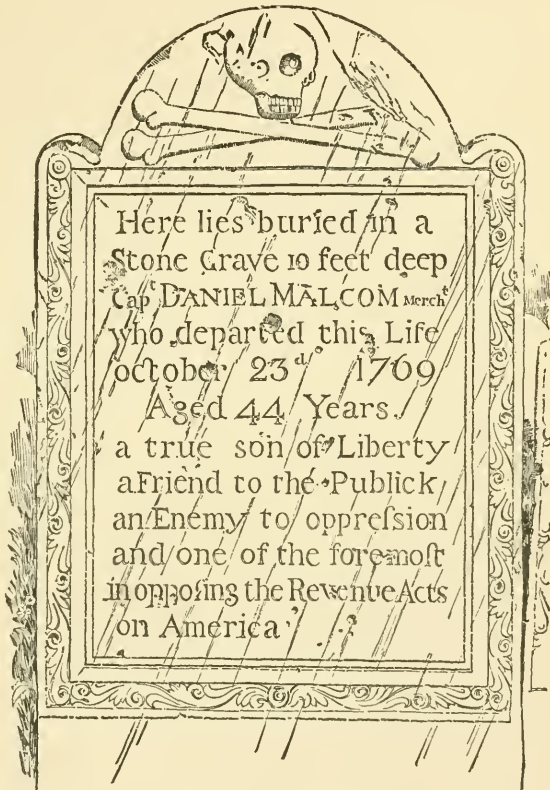 Here lies buried in a
Stone Grave 10 feet deep
Capᵗ DANIEL MALCOM Merchᵗ
who departed this Life
october 23ᵈ 1769
Aged 44 Years.
a true son of Liberty
a Friend to the Publick
an Enemy to oppreſsion
and one of the foremoſt
in oppoſing the Revenue Acts
on America